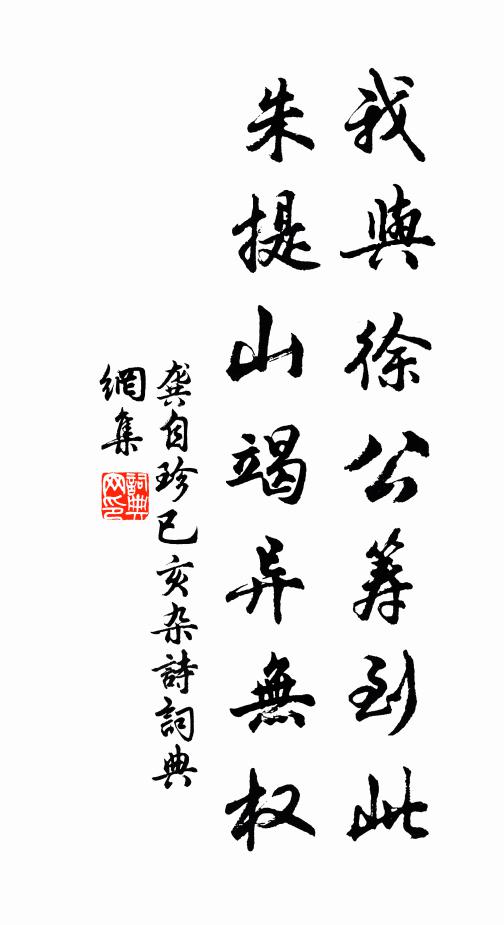 我與徐公籌到此
朱提山竭异無权
龔自珍己亥杂詩詞典
網集
詞典
网印